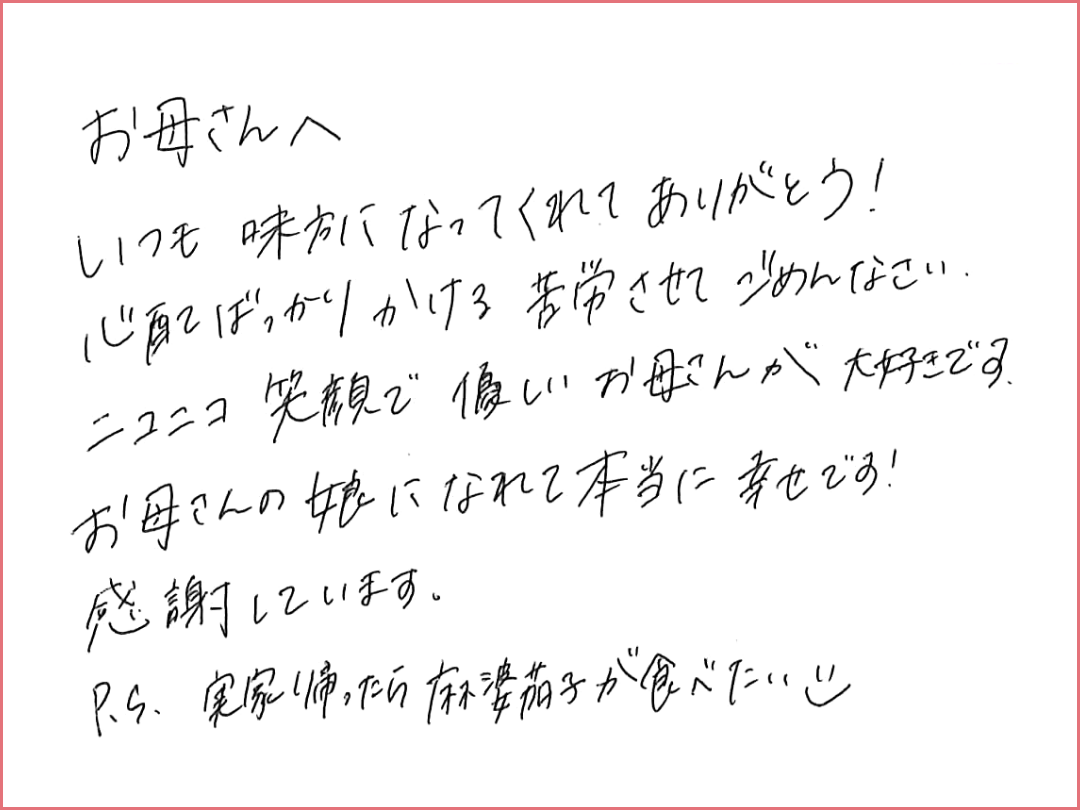 お母さんへ
いつも 味方に なってくれて ありがとう!
心配ばっかり かける 苦労させて ごめんなさい.
ニコニコ 笑顔で 優しい お母さんが 大好きです.
お母さんの 娘に なれて 本当に 幸せです!
感謝しています。
P.S. 実家帰ったら 麻婆茄子が食べたい